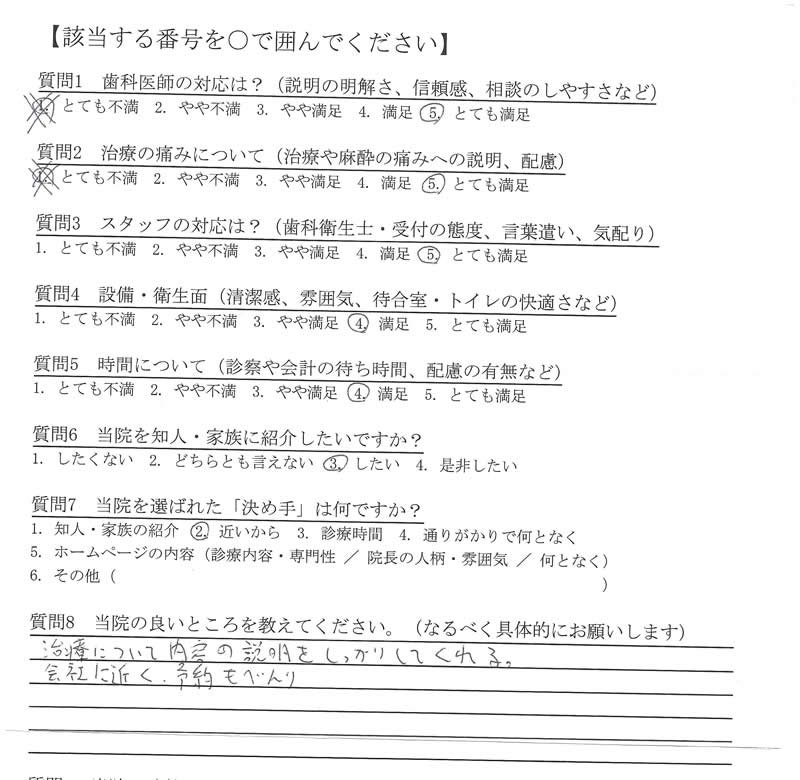 【該当する番号を○で囲んでください】
質問1 歯科医師の対応は？（説明の明解さ、信頼感、相談のしやすさなど）
1. とても不満 2. やや不満 3. やや満足 4. 満足 5. とても満足
質問2 治療の痛みについて（治療や麻酔の痛みへの説明、配慮）
1. とても不満 2. やや不満 3. やや満足 4. 満足 5. とても満足
質問3 スタッフの対応は？（歯科衛生士・受付の態度、言葉遣い、気配り）
1. とても不満 2. やや不満 3. やや満足 4. 満足 5. とても満足
質問4 設備・衛生面（清潔感、雰囲気、待合室・トイレの快適さなど）
1. とても不満 2. やや不満 3. やや満足 4. 満足 5. とても満足
質問5 時間について（診察や会計の待ち時間、配慮の有無など）
1. とても不満 2. やや不満 3. やや満足 4. 満足 5. とても満足
質問6 当院を知人・家族に紹介したいですか？
1. したくない 2. どちらとも言えない 3. したい 4. 是非したい
質問7 当院を選ばれた「決め手」は何ですか？
1. 知人・家族の紹介 2. 近いから 3. 診療時間 4. 通りがかりで何となく
5. ホームページの内容（診療内容・専門性 ／ 院長の人柄・雰囲気 ／ 何となく）
6. その他（ ）
質問8 当院の良いところを教えてください。（なるべく具体的にお願いします）
治療について内容の説明をしっかりしてくれる。
会社に近く、予約もべんり